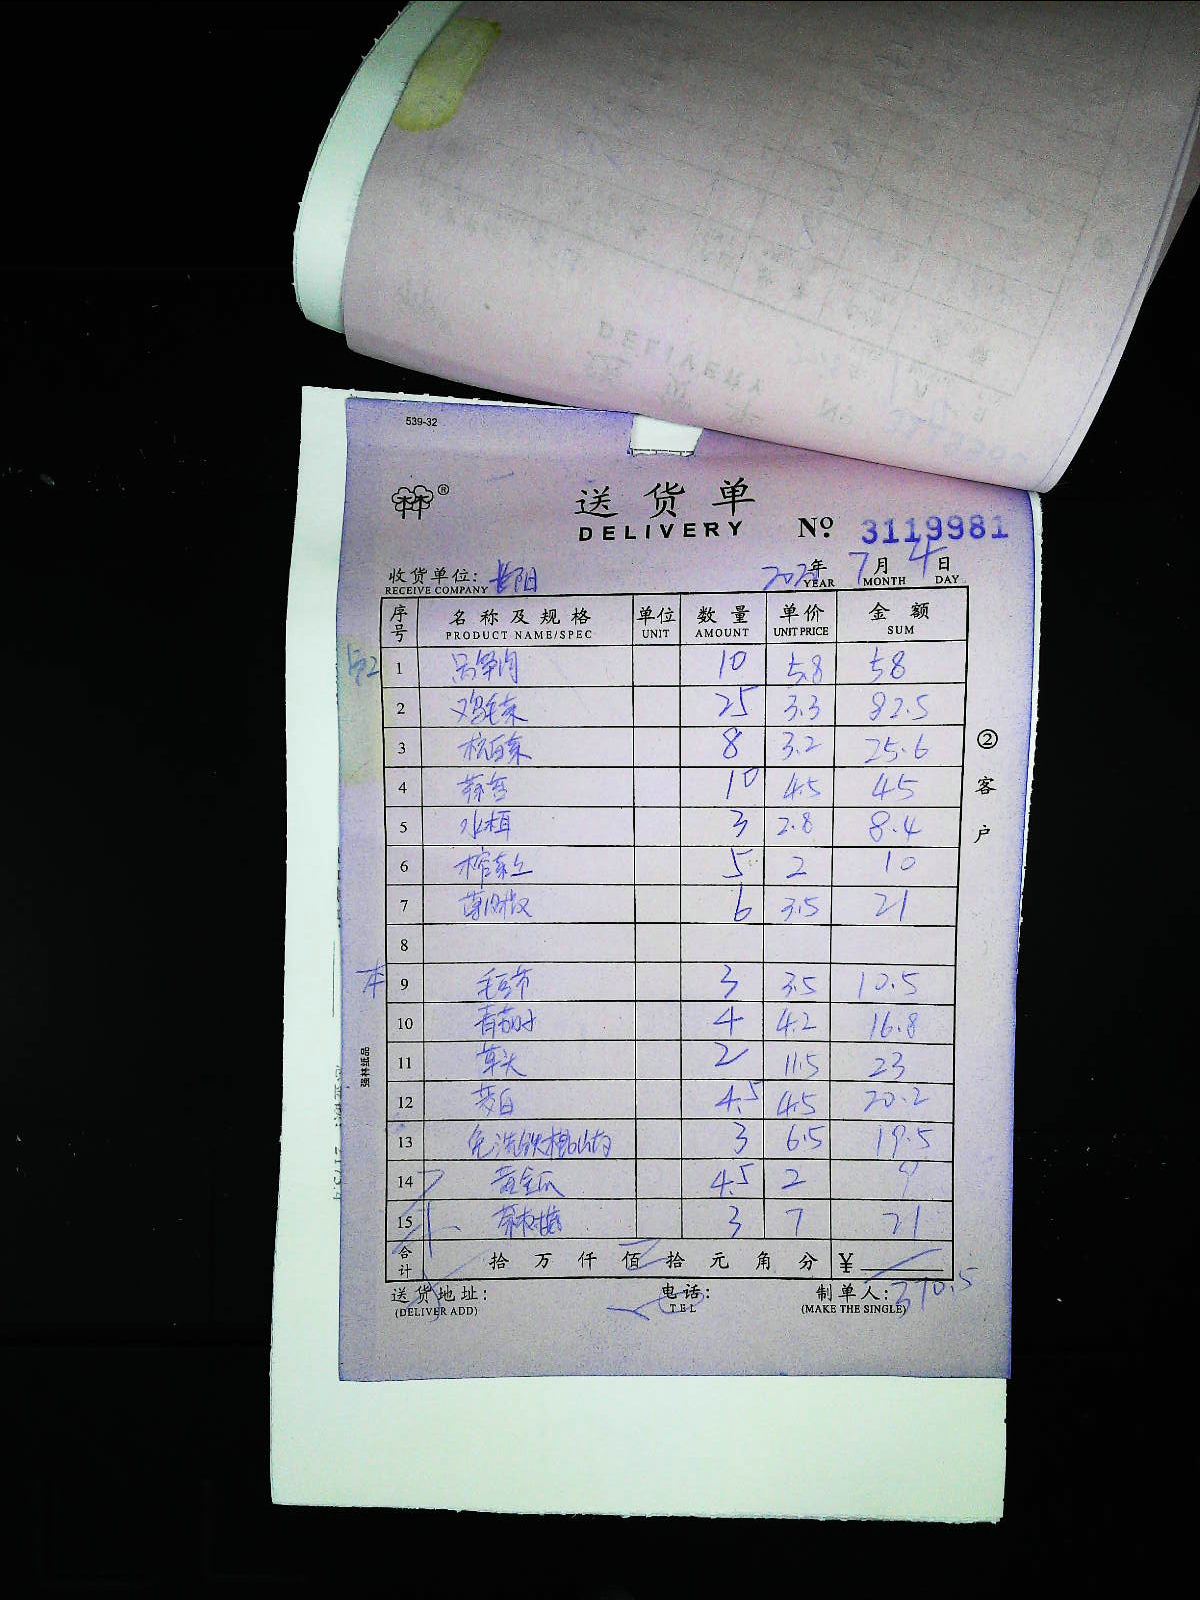 539-32
送货单
DELIVERY Nº 3119981
收货单位: 长阳 年 7月 4日
RECEIVE COMPANY YEAR MONTH DAY
序号 名称及规格 单位 数量 单价 金额
PRODUCT NAME/SPEC UNIT AMOUNT UNIT PRICE SUM
1 10 5.8 58
2 鸡毛菜 25 3.3 82.5
3 杭白菜 8 3.2 25.6
4 10 4.5 45
5 3 2.8 8.4
6 榨菜丝 5 2 10
7 6 3.5 21
8
9 毛豆节 3 3.5 10.5
10 4 4.2 16.8
11 草头 2 11.5 23
12 茭白 4.5 4.5 20.2
13 免洗铁棍山药 3 6.5 19.5
14 黄金瓜 4.5 2 9
15 3 7 21
合计 拾 万 仟 佰 拾 元 角 分 ¥
370.5
送货地址: 电话: 制单人:
(DELIVER ADD) TEL (MAKE THE SINGLE)
②客户
强林纸品